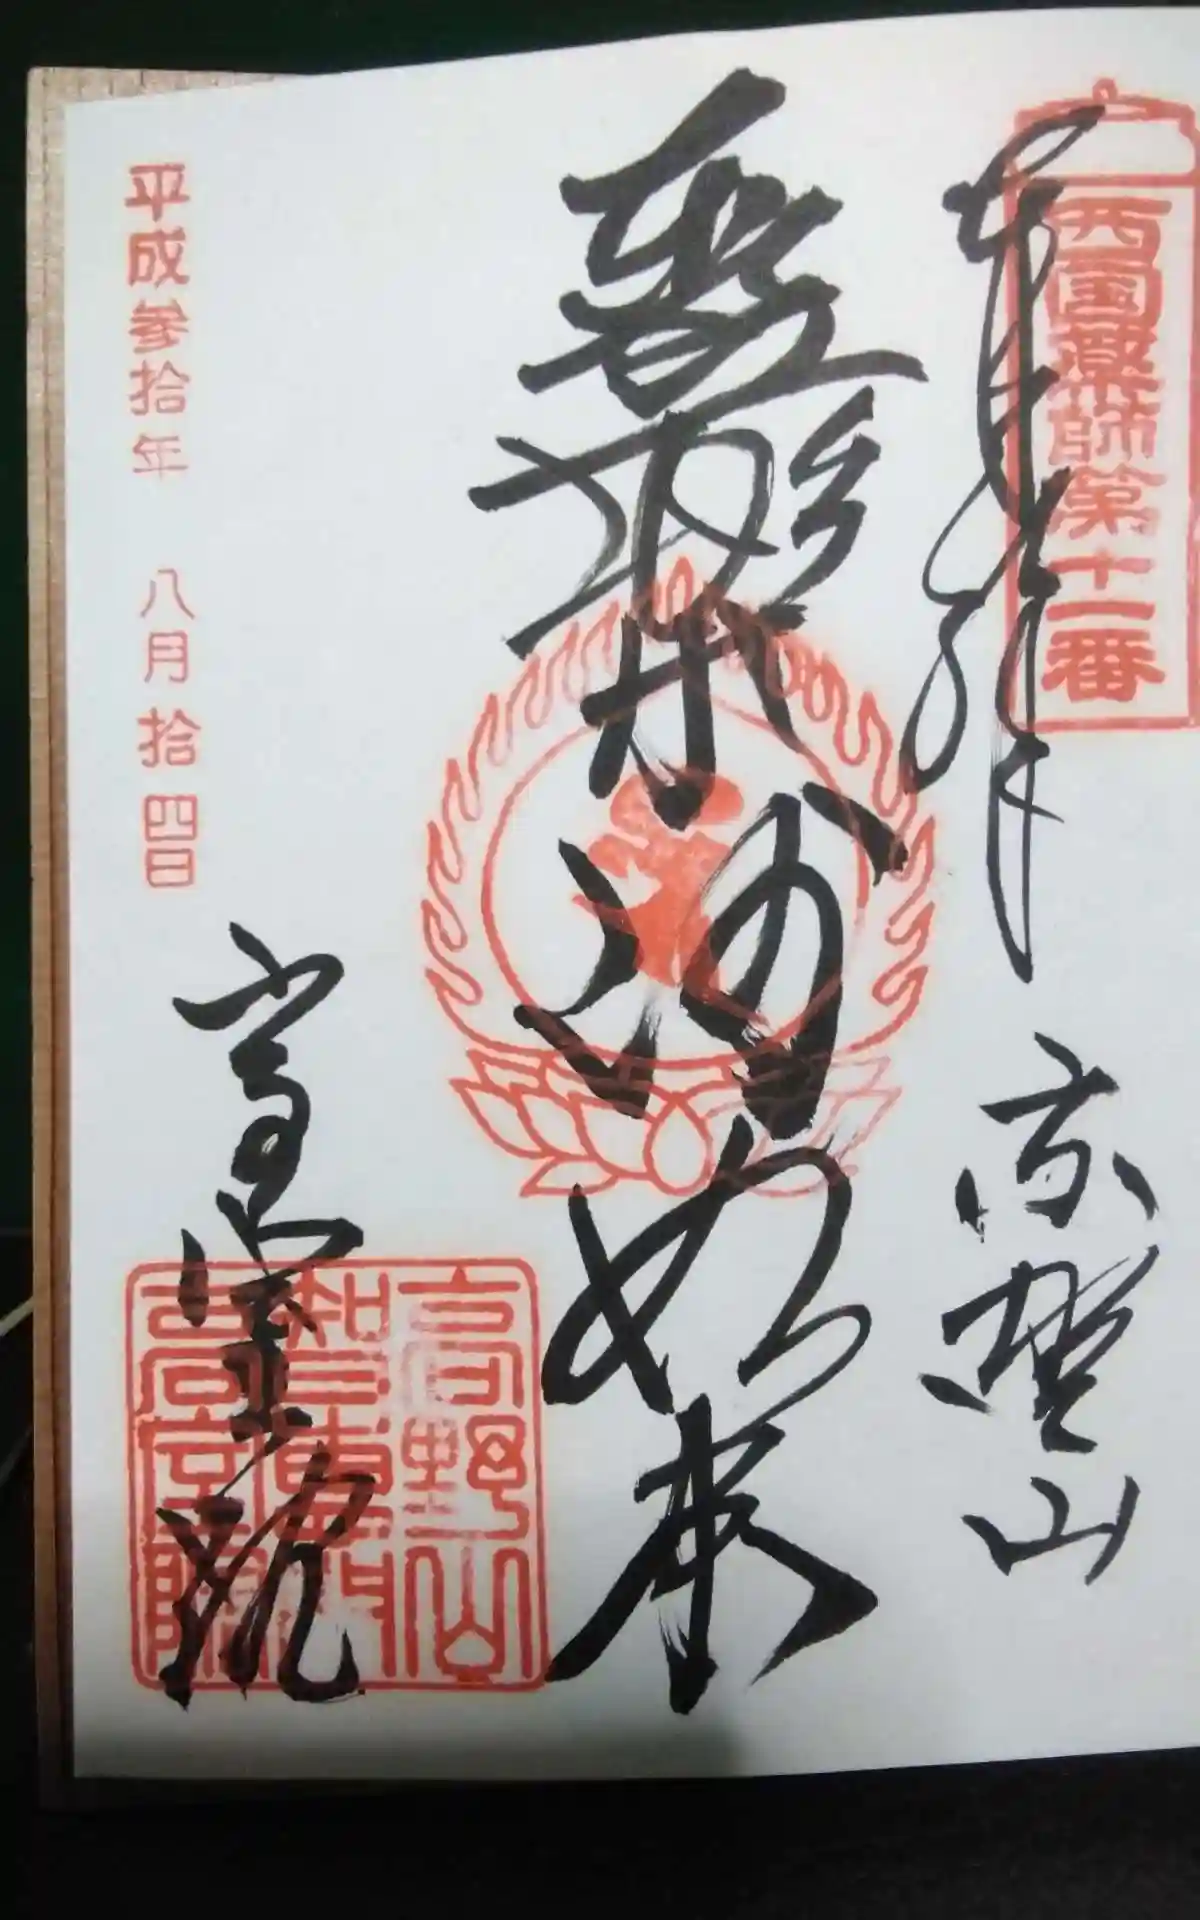 西国薬師第十一番
奉拝 高野山
如来
平成参拾年 八月拾四日
高室院
高野山
高室院